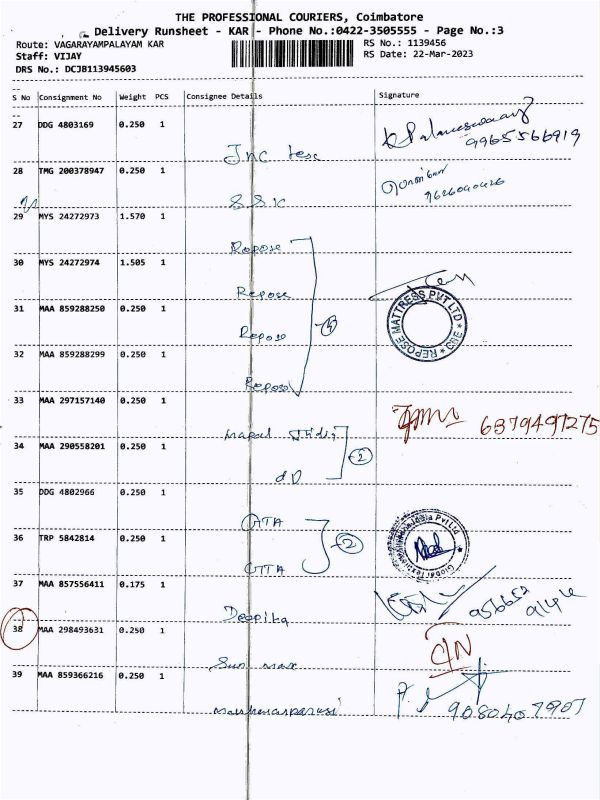 THE PROFESSIONAL COURIERS, Coimbatore
Delivery Runsheet - KAR - Phone No.:0422-3505555 - Page No.:3
Route: VAGARAYAMPALAYAM KAR RS No.: 1139456
Staff: VIJAY RS Date: 22-Mar-2023
DRS No.: DCJB113945603
S No Consignment No Weight PCS Consignee Details Signature
27 DDG 4803169 0.250 1
9965566919
28 TMG 200378947 0.250 1
SSK
29 MYS 24272973 1.570 1
Repose
30 MYS 24272974 1.505 1
Repose
REPOSE MATTRESS PVT LTD * CBE *
31 MAA 859288250 0.250 1
Repose
4
32 MAA 859288299 0.250 1
Repose
33 MAA 297157140 0.250 1
6379497275
34 MAA 290558201 0.250 1
2
35 DDG 4802966 0.250 1
GTA
36 TRP 5842814 0.250 1
2
GTTA
37 MAA 857556411 0.175 1
Deepika
38 MAA 298493631 0.250 1
Sun max
39 MAA 859366216 0.250 1
9080407907